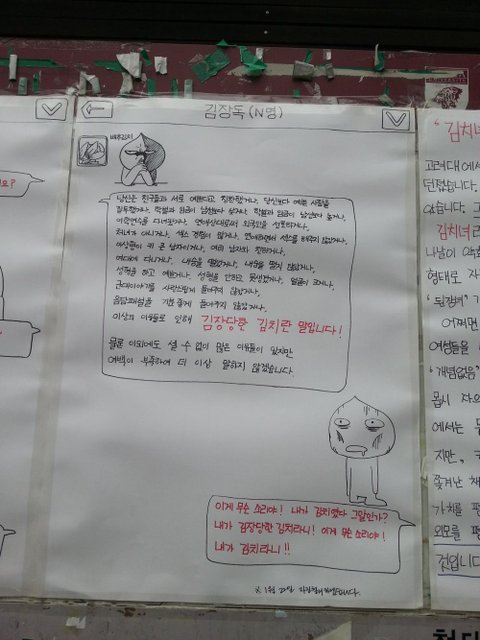 김장독 (N명)
배추김치
당신은 친구들과 서로 예쁘다고 칭찬했거나, 당신보다 예쁜 사람을
질투했거나, 학벌과 임금이 남성보다 낮거나, 학벌과 임금이 남성보다 높거나,
어학연수를 다녀왔거나, 연애상대로서 외국인을 선호하거나,
처녀가 아니거나, 섹스 경험이 많거나, 연애하면서 섹스를 해주지 않았거나,
이상형이 키 큰 남자이거나, 여러 남자와 친하거나,
여대에 다니거나, 내숭을 떨었거나, 내숭을 떨지 않았거나,
성형을 하고 예쁘거나, 성형을 안하고 못생겼거나, 얼굴이 크거나,
군대이야기를 사랑스럽게 들어주지 않았거나,
음담패설을 기분 좋게 들어주지 않았거나,
이상의 이유들로 인해 김장당한 김치란 말입니다!
물론 이외에도 셀 수 없이 많은 이유들이 있지만
여백이 부족하여 더 이상 말하지 않겠습니다.
이게 무슨 소리야! 내가 김치였다 그말인가?
내가 김장당한 김치라니! 이게 무슨 소리야!
내가 김치라니!!
요?
'김치녀
고려대에서
던졌습니다.
았습니다.
김치녀라
나날이
형태로
'된장녀'
어쩌면
여성들을
'개념없음'
몹시
에서는
지만,
쫓겨난
가치를
외모를
것입니다